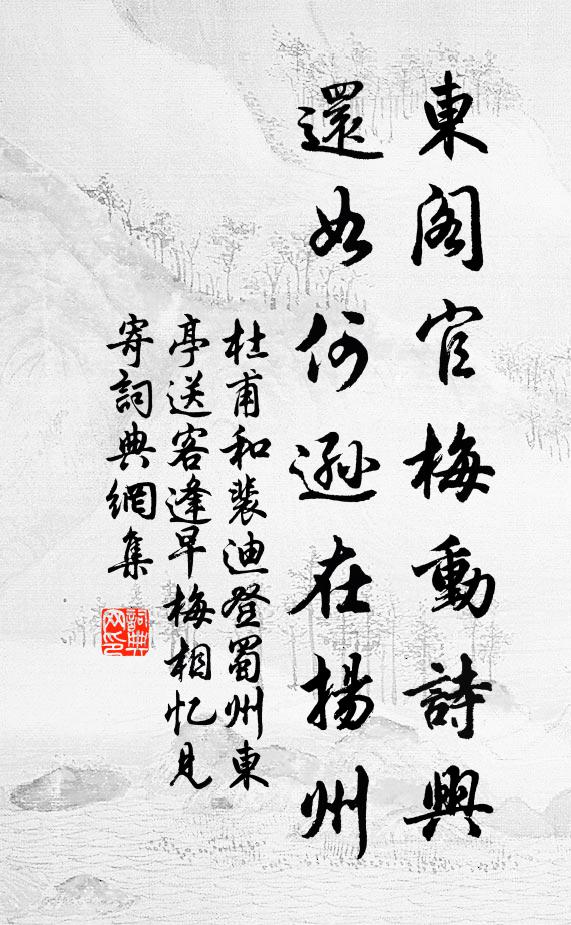 東閣官梅動詩興
還如何遜在揚州
杜甫和裴迪登蜀州東
亭送客逢早梅相忆見
寄詞典網集
詞典
网印